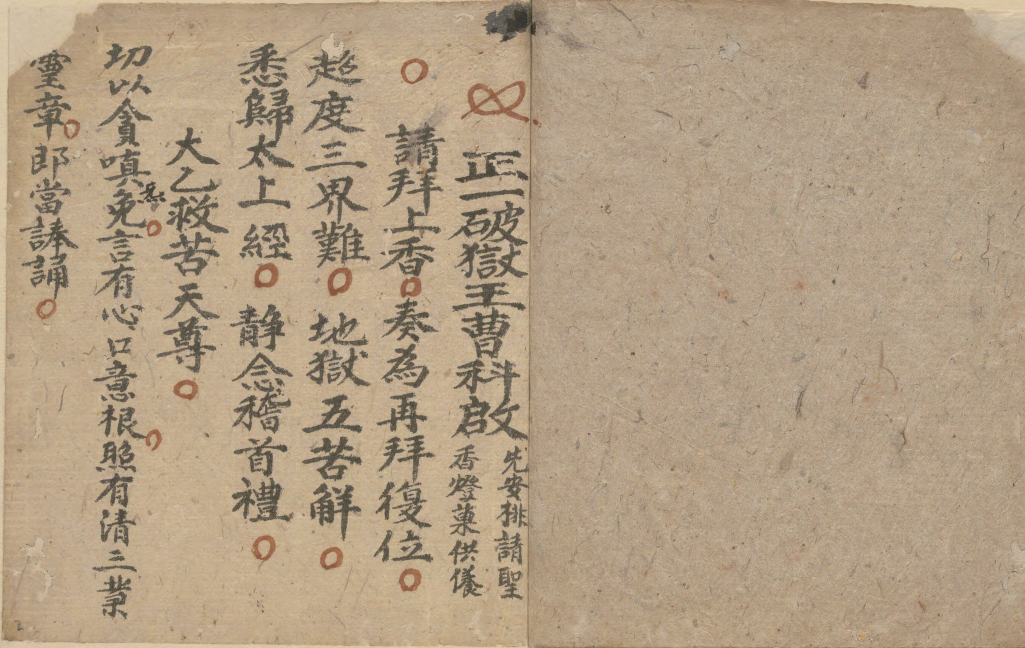 正一破獄王曹科啟
先安排請聖
香燈菓供儀
請拜上香奏為再拜復位
超度三界難 地獄五苦解
悉歸太上經 静念稽首禮
大乙救苦天尊
切以貪嗔免言有心口意根照有清三業
靈章郎當諃誦